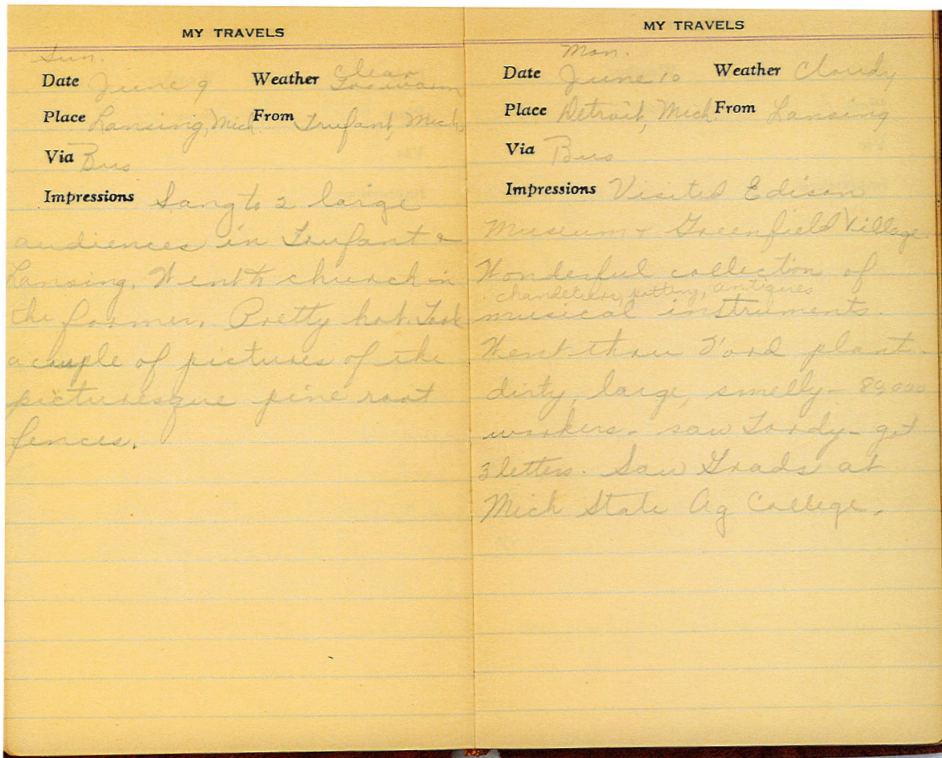 MY TRAVELS
Sun.
Date June 9 Weather Clear
Place Lansing, Mich. From Trufant, Mich.
Via Bus
Impressions Sang to 2 large
audiences in Trufant &
Lansing. Went to church in
the former. Pretty hot. Took
a couple of pictures of the
picturesque pine root
fences.
MY TRAVELS
Mon.
Date June 10 Weather Cloudy
Place Detroit, Mich. From Lansing
Via Bus
Impressions Visited Edison
Museum & Greenfield Village.
Wonderful collection of
chandeliers, pottery, antiques
musical instruments.
Went thru Ford plant -
dirty, large, smelly -
workers - saw - got
3 letters. Saw Grads at
Mich State Ag College.